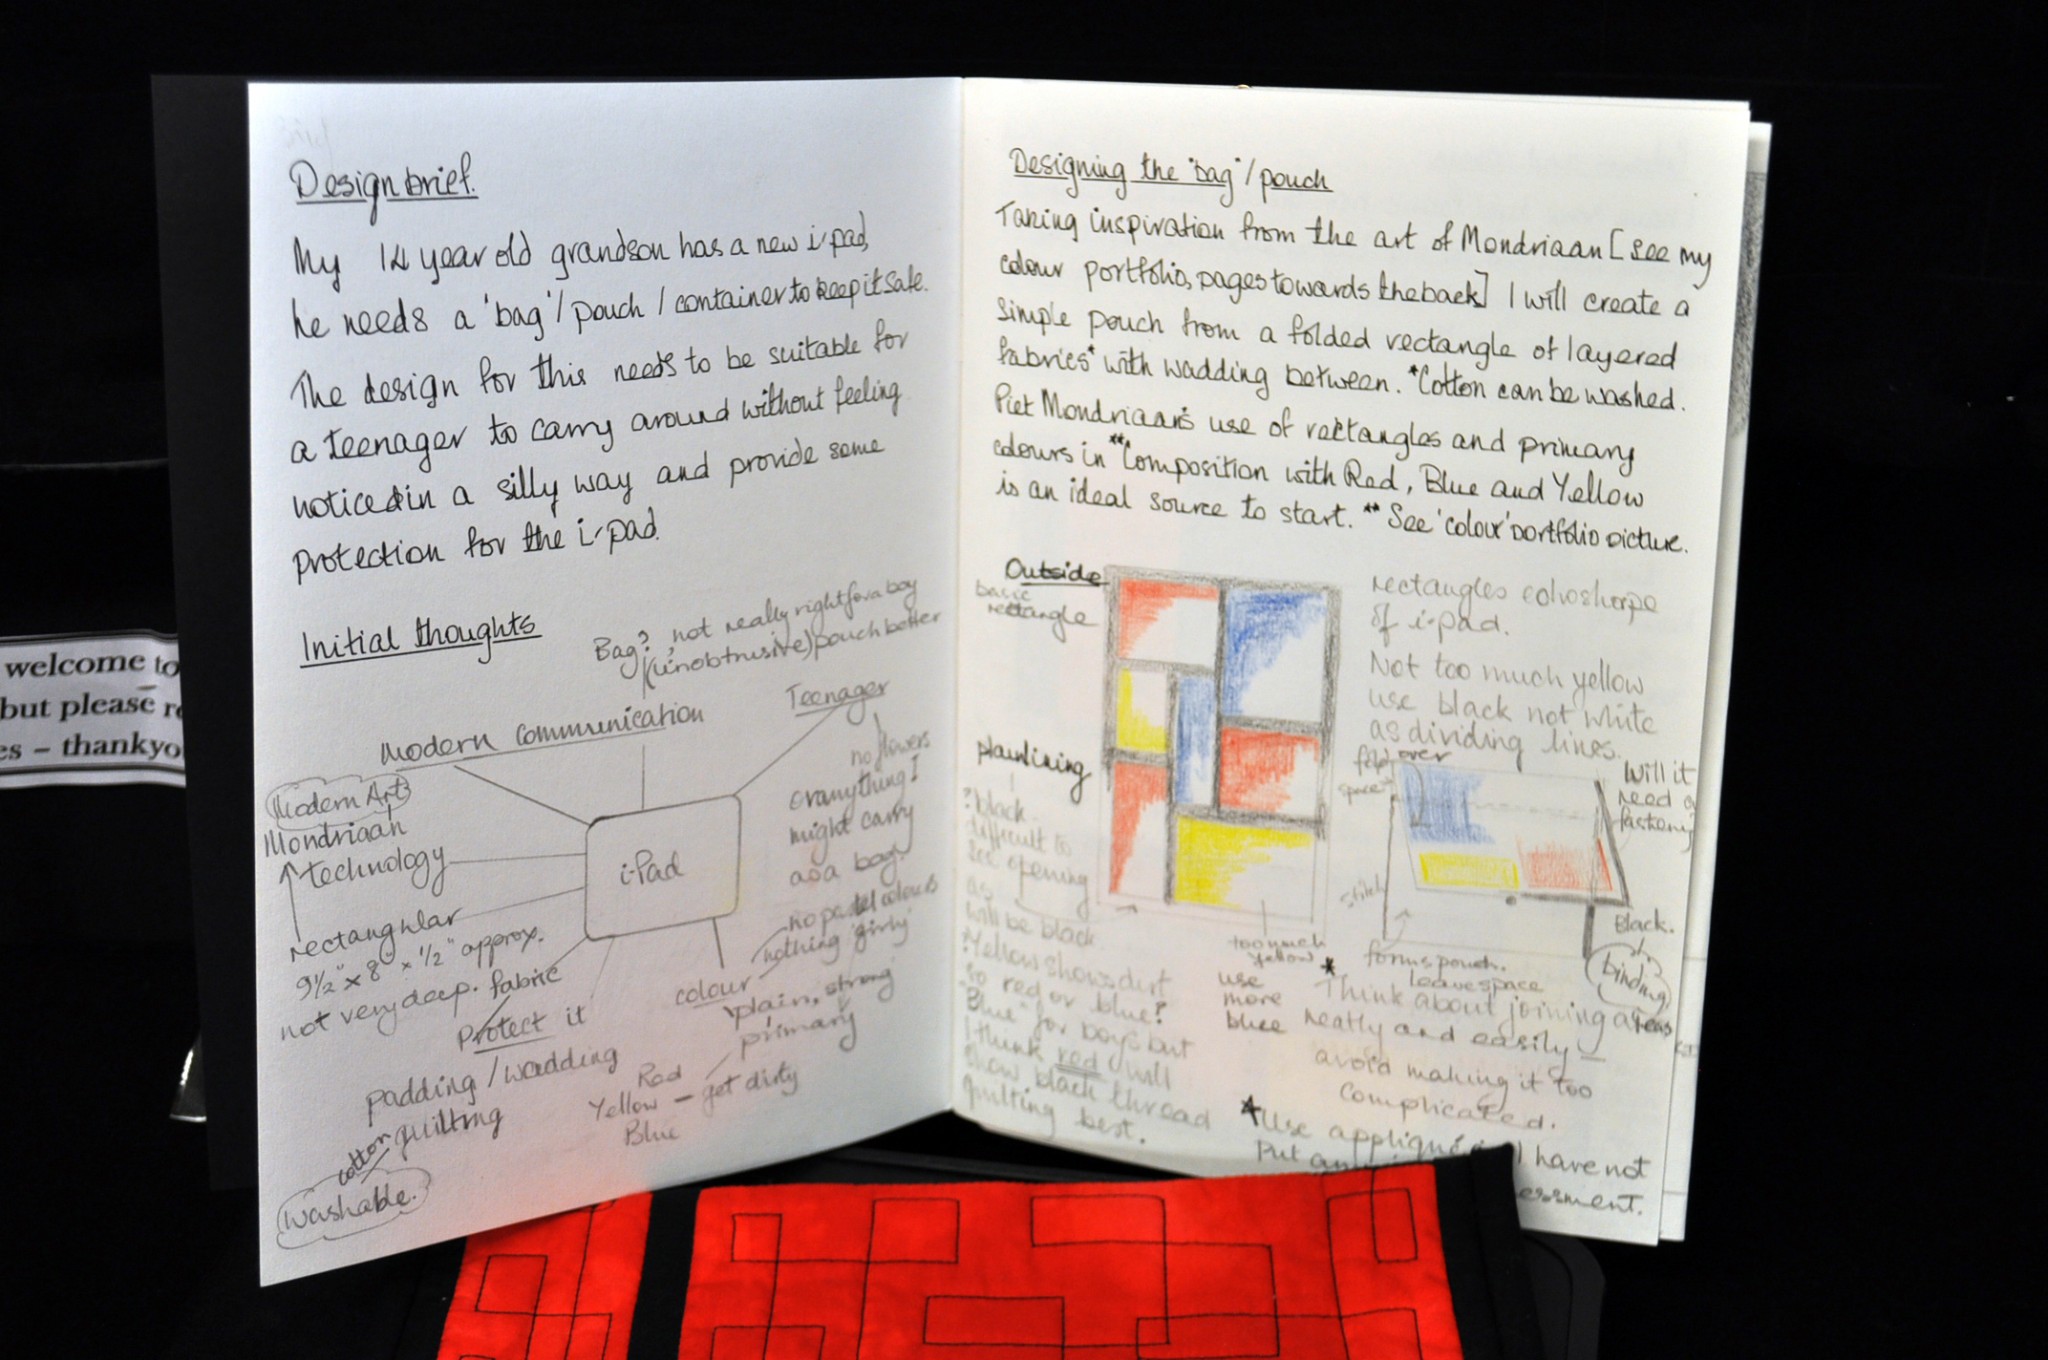 welcome to
but please
es – thankyo
Design brief.
My 14 year old grandson has a new i-pad,
he needs a 'bag'/pouch/container to keep it safe.
The design for this needs to be suitable for
a teenager to carry around without feeling
noticed in a silly way and provide some
protection for the i-pad.
Initial thoughts
Bag? not really right for a boy
(unobtrusive) pouch better
Teenager
no flowers
or anything I
might carry
as a bag.
Modern communication
Modern Art
Mondriaan
technology
i-Pad
rectangular
9½" x 8" x ½" approx.
not very deep.
fabric
Protect it
padding/wadding
quilting
cotton
washable.
colour
no pastel colours
nothing 'girly'
plain, strong
primary
Red
Yellow – get dirty
Blue
Designing the 'bag'/pouch
Taking inspiration from the art of Mondriaan [see my
colour portfolio, pages towards the back] I will create a
simple pouch from a folded rectangle of layered
fabrics* with wadding between. *Cotton can be washed.
Piet Mondriaan's use of rectangles and primary
colours in **Composition with Red, Blue and Yellow
is an ideal source to start. ** See 'colour' portfolio picture.
Outside
basic
rectangle
rectangles echo shape
of i-pad.
Not too much yellow
use black not white
as dividing lines.
plain lining
? black
difficult to
see opening
as
will be black
? Yellow shows dirt
so red or blue?
"Blue" for boys but
I think red will
show black thread
quilting best.
too much
yellow
use
more
blue
fold over
space
Will it
need a
fastening
stitch
Black.
binding
forms pouch.
leave space
* Think about joining areas
neatly and easily –
avoid making it too
complicated.
* Use appliqué I have not
Put
essment.